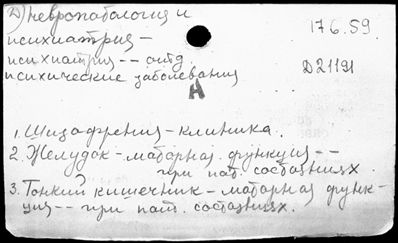 Д) невропатология и
17 6.59
психиатрия -
психиатрия -- отд.
Д21191
психические заболевания
А
1. Шизофрения - клиника.
2. Желудок - моторная функция --
при пат. состояниях.
3. Тонкий кишечник - моторная функ-
ция -- при пат. состояниях.